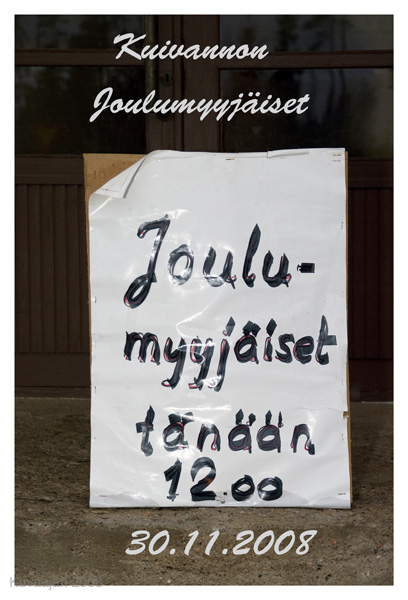 Kuivannon
Joulumyyjäiset
Joulu-
myyjäiset
tänään
12.00
30.11.2008